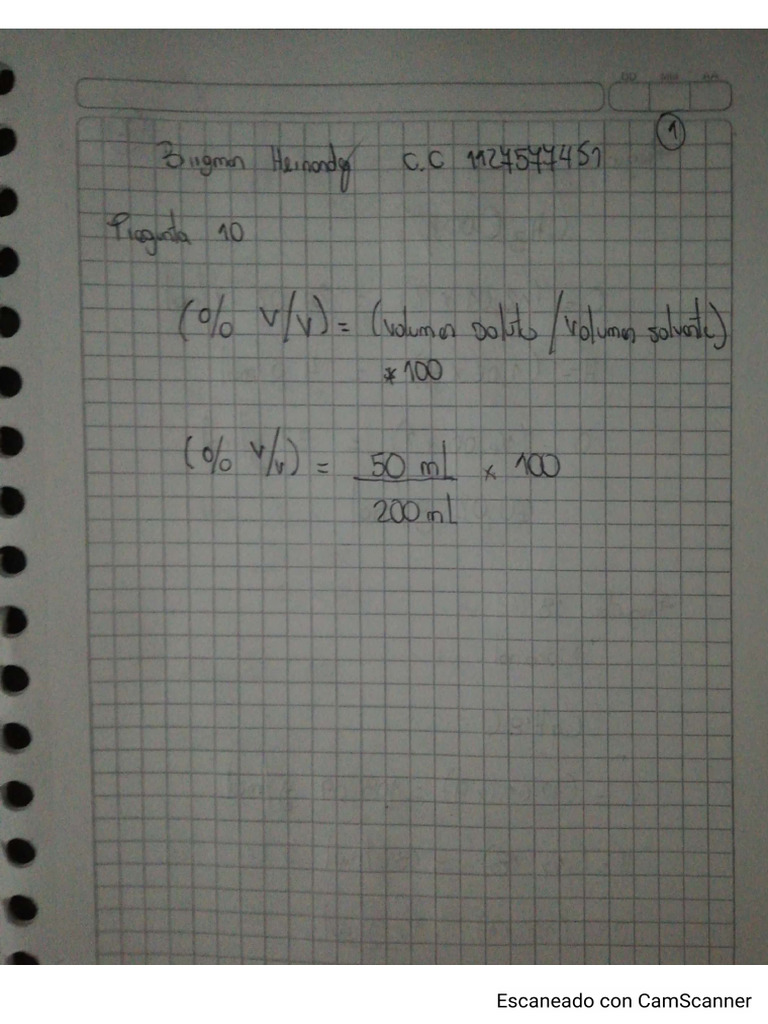 DD MM AA
1
Hernandez C.C 1127577451
Pregunta 10
(% v/v) = (volumen soluto / volumen solvente)
* 100
(% v/v) = 50 mL x 100
200 mL
Escaneado con CamScanner